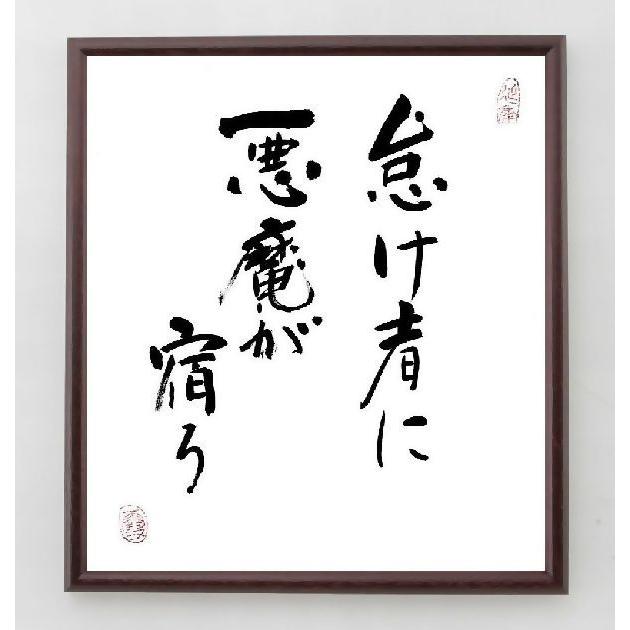 怠け者に
悪魔が
宿る